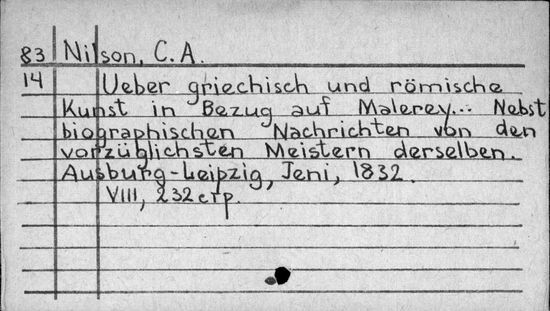 83 Nilson, C. A.
14 Ueber griechisch und römische
Kunst in Bezug auf Malerey... Nebst
biographischen Nachrichten von den
vorzüglichsten Meistern derselben.
Ausburg-Leipzig, Jeni, 1832.
VIII, 232 стр.